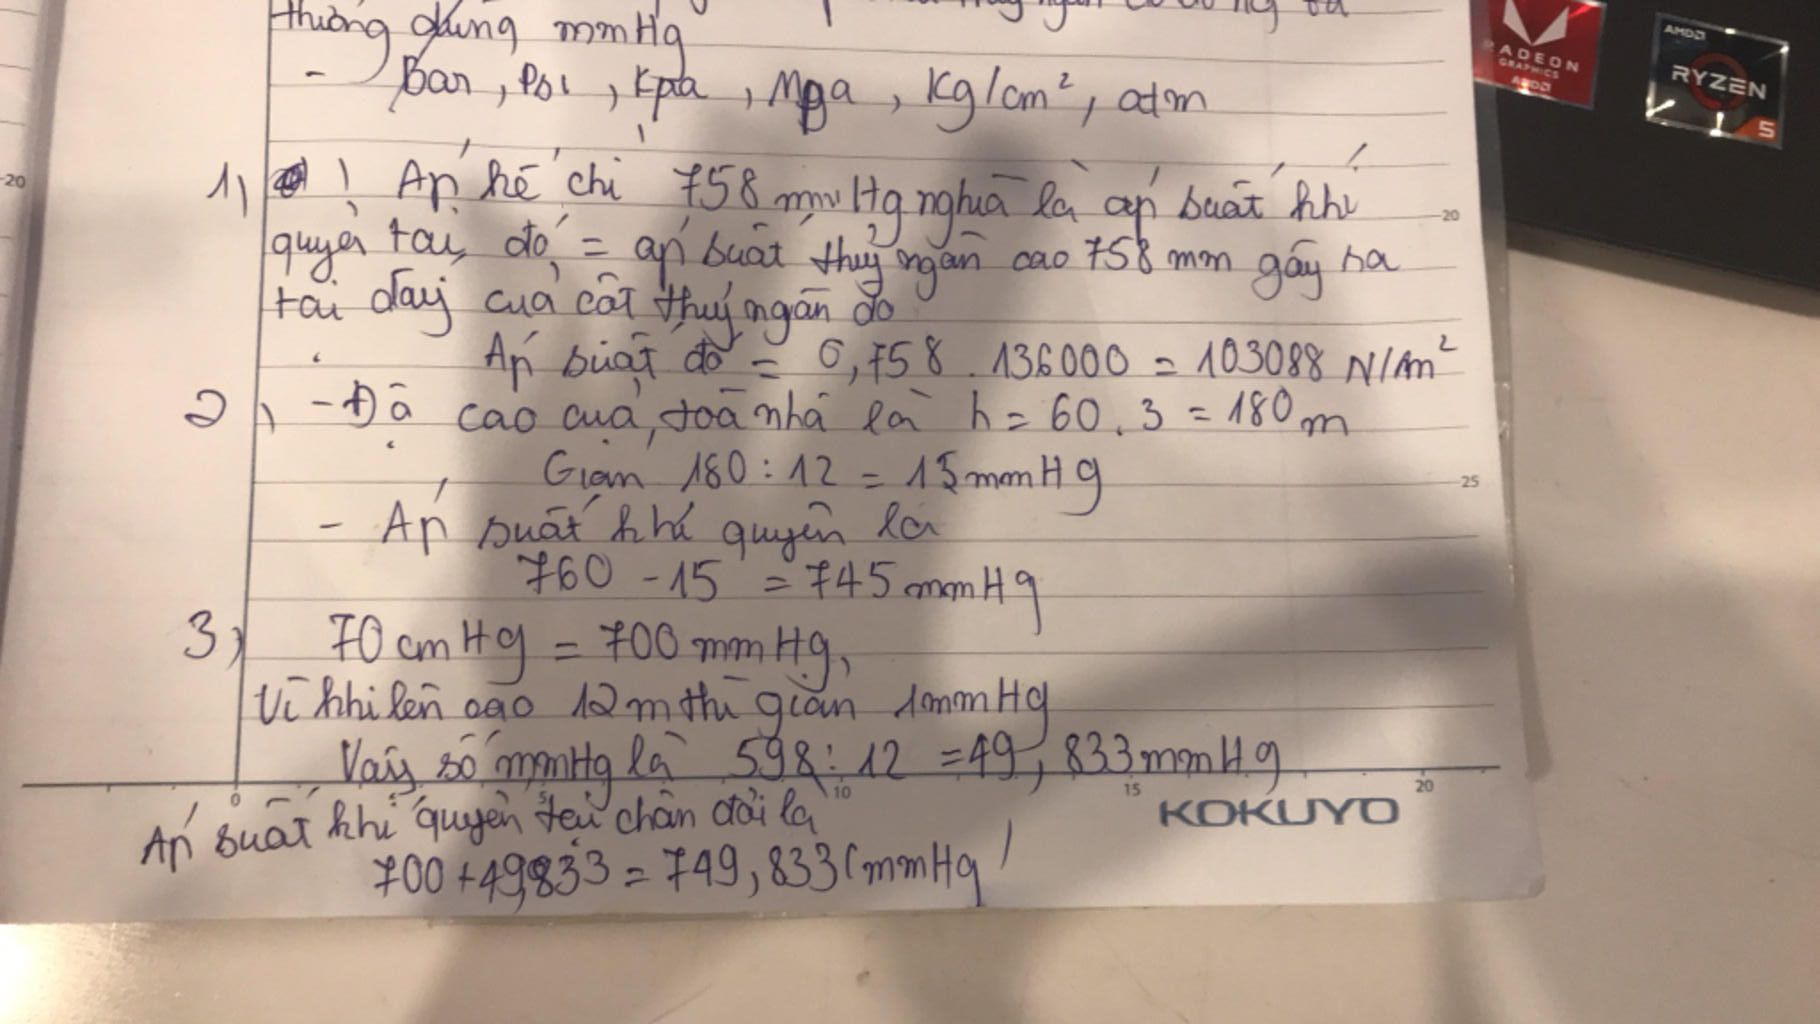 thường dùng mmHg
- Bar, Psi, Kpa, Mpa, Kg/cm², atm
1) Áp kế chỉ 758 mmHg nghĩa là áp suất khí
quyển tại đó = áp suất thuỷ ngân cao 758 mm gây ra
tại đáy của cột thuỷ ngân đó
Áp suất đó = 0,758 . 136000 = 103088 N/m²
2) - Độ cao của toà nhà là h = 60 . 3 = 180 m
Giảm 180 : 12 = 15 mmHg
- Áp suất khí quyển là
760 - 15 = 745 mmHg
3) 70 cmHg = 700 mmHg,
Vì khi lên cao 12 m thì giảm 1 mmHg
Vậy số mmHg là 598 : 12 = 49,833 mmHg
Áp suất khí quyển tại chân đồi là
700 + 49,833 = 749,833 (mmHg)
KOKUYO
0 5 10 15 20
20
20
25
RADEON
GRAPHICS
AMD
AMD
RYZEN
5